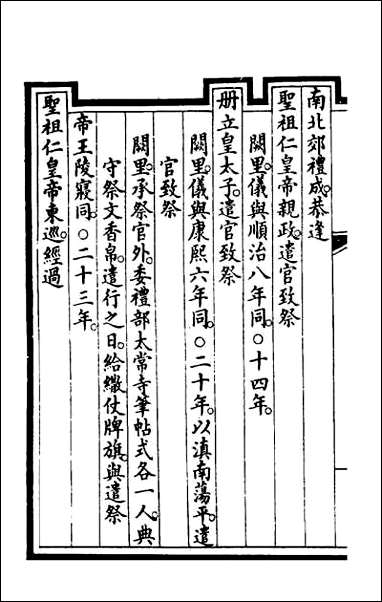 南北郊禮成。恭逢
聖祖仁皇帝親政。遣官致祭
闕里。儀與順治八年同。○十四年。
冊立皇太子。遣官致祭
闕里。儀與康熙六年同。○二十年。以滇南蕩平。遣
官致祭
闕里。承祭官外。委禮部太常寺筆帖式各一人。典
守祭文香帛。遣行之日。給繖仗牌旗。與遣祭
帝王陵寢同。○二十三年。
聖祖仁皇帝東巡。經過